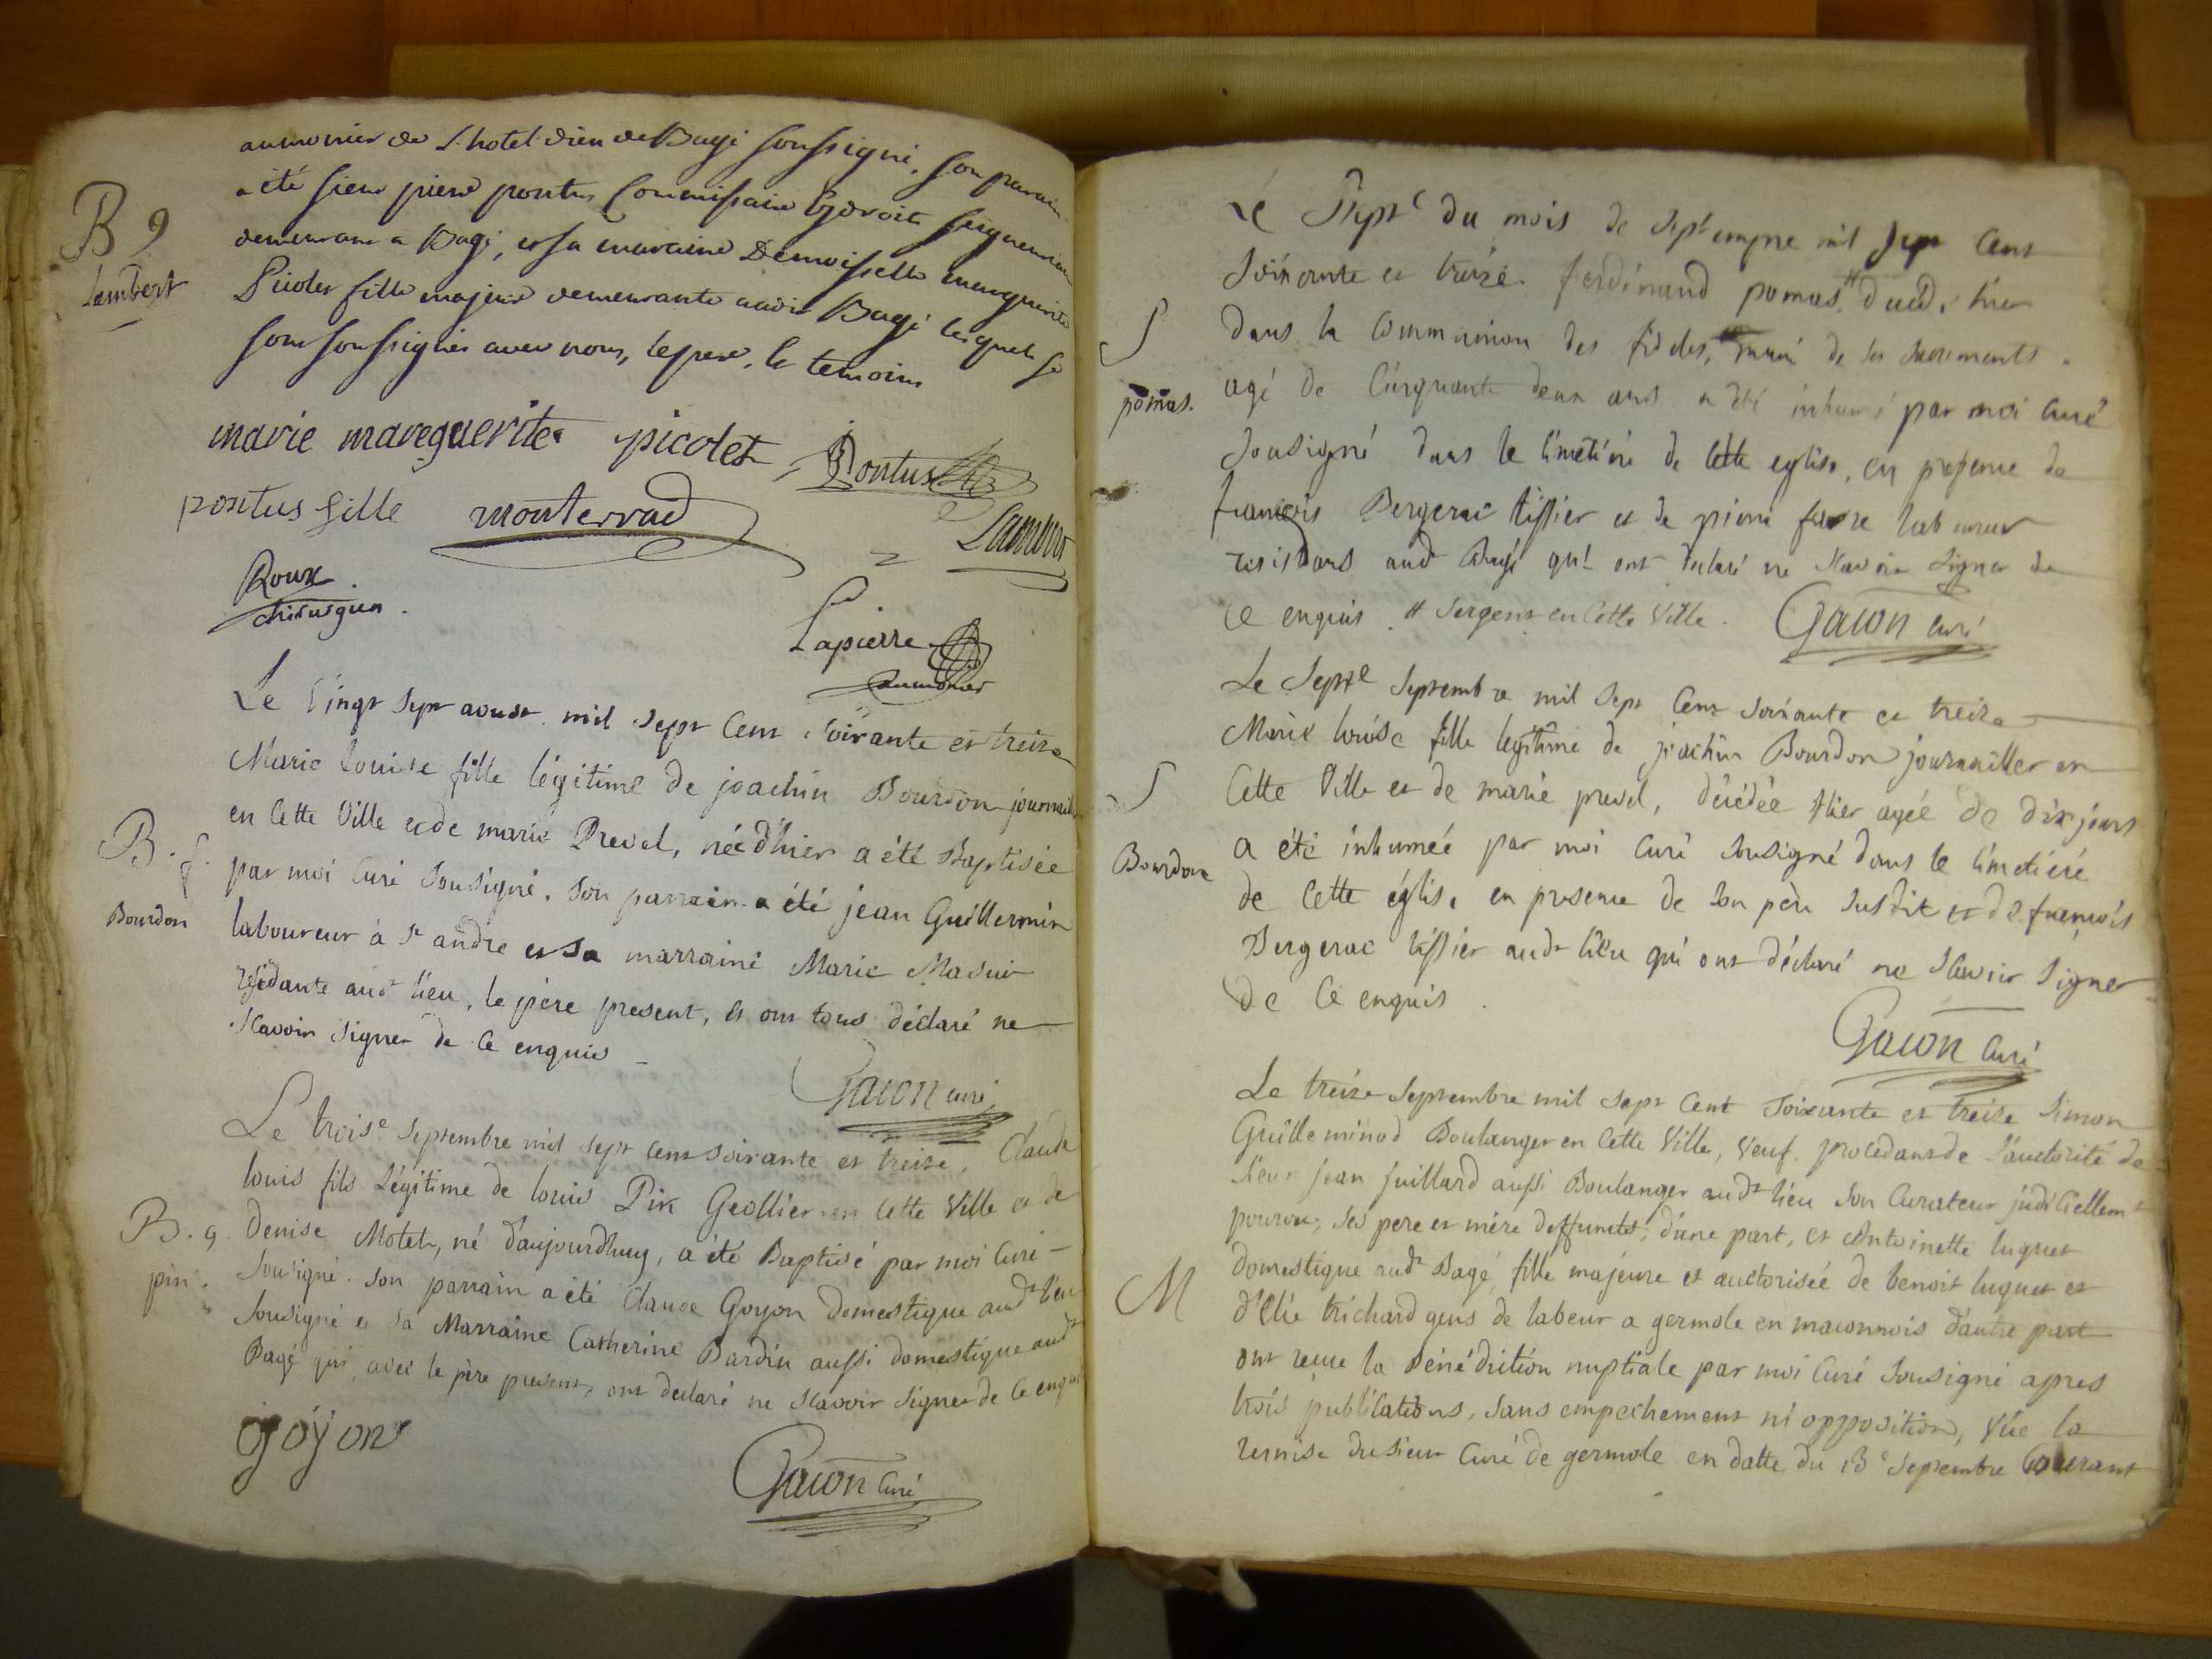 B g
Lambert
aumonier de L'hotel dieu de Bagé soussigné, son parain
a été sieur pierre pontus Commissaire
demeurant a Bagé, et sa maraine Demoiselle marguerite
Picolet fille majeure demeurante audit Bagé lesquels se
sont soussignés avec nous, le pere, le temoins
marie mareguerite picolet Pontus
pontus fille monterrad Lambert
Roux
chirurgien
Lapierre
aumonier
Le vingt sept aoust mil sept cent soixante et treize
Marie Louise fille légitime de joachin Bourdon journal
B. f.
Bourdon
en cette Ville et de marie Prevel, née d'hier a été Baptisée
par moi Curé Sousigné. Son parrain a été jean Guillermin
laboureur à St andre et sa marraine Marie Masuir
résidante audt lieu, le père present, et ont tous déclaré ne
sçavoir signer de ce enquis
Gacon curé
Le troise septembre mil sept cent soixante et treize, Claude
louis fils Légitime de louis Pin Geollier en cette Ville et de
B. g.
pin.
Denise Motet, né d'aujourdhuy, a été Baptisé par moi Curé
Sousigné. Son parrain a été Claude Goyon Domestique audt lieu
Sousigné et sa Marraine Catherine Bardin aussi domestique audt
Bagé qui avec le père present, ont declaré ne sçavoir signer de ce enquis
goyon
Gacon Curé
Le Septe du mois de septempre mil sept cent
soixante et treize ferdinand pomas # decedé hier
S
pomas.
dans la communion des fideles, muni de ses sacrements
agé de cinquante deux ans a été inhumé par moi curé
sousigné dans le cimetiére de cette eglise, en presence de
francois Bergerac tissier et de pierre favre laboureur
residans audt Bagé qui ont declaré ne sçavoir signer de
ce enquis # sergent en cette Ville. Gacon curé
Le Septe Septembre mil sept cent soixante et treize
Marie louise fille legitime de joachin Bourdon journallier en
S
Bourdon
cette Ville et de marie prevel, décédée hier agée de dix jours
a été inhumée par moi curé sousigné dans le cimetiére
de cette église en presence de son père susdit et de francois
Bergerac tissier audt lieu qui ont déclaré ne sçavoir signer
de ce enquis.
Gacon curé
Le treize Septembre mil sept cent soixante et treize Simon
Guilleminod Boulanger en cette Ville, Veuf. procedant de l'auctorité de
sieur jean juillard aussi Boulanger audt lieu son Curateur judiciellemt
pourvu, ses pere et mère deffuncts, d'une part, et Antoinette luquet
M
domestique audt Bagé, fille majeure et auctorisée de benoit luquet et
d'Elie trichard gens de labeur a germole en maconnois d'autre part
ont reçue la Bénédiction nuptiale par moi Curé Sousigné apres
trois publications, sans empechement ni opposition, Vue la
remise du sieur Curé de germole en datte du 13e Septembre Courant